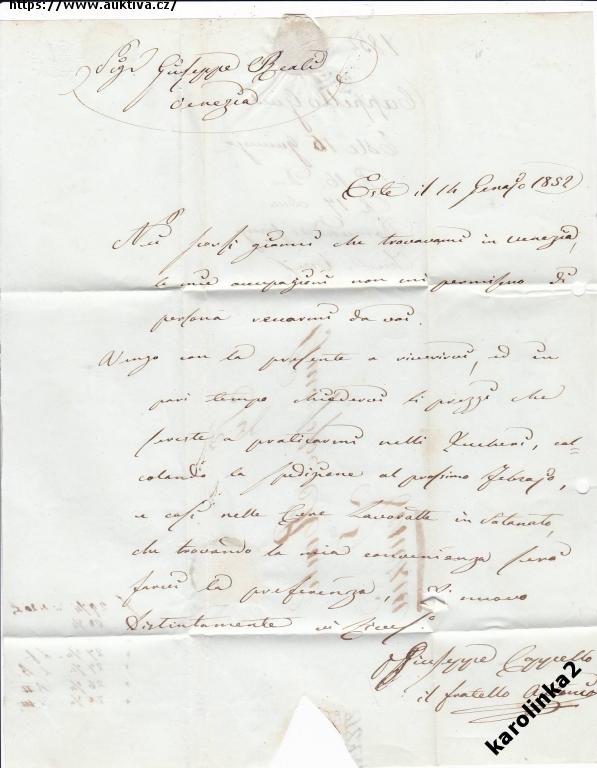 https://www.auktiva.cz/
Sigr Giuseppe Reali
Venezia
Este il 14 Genajo 1852
Nei scorsi giorni che trovavami in Venezia,
le mie occupazioni non mi permisero di
persona reccarmi da voi.
Vengo con la presente a riverirvi, ed in
pari tempo chiedervi li prezzi che
sareste a praticarmi nelli Zuccheri, cal=
colando la spedizione al prossimo Febrajo,
e così nelle Cere Lavoratte in
che trovando la mia convenienza sarà
farvi la preferenza, Di nuovo
Distintamente vi
Giuseppe Cappello
il fratello Antonio
karolinka2